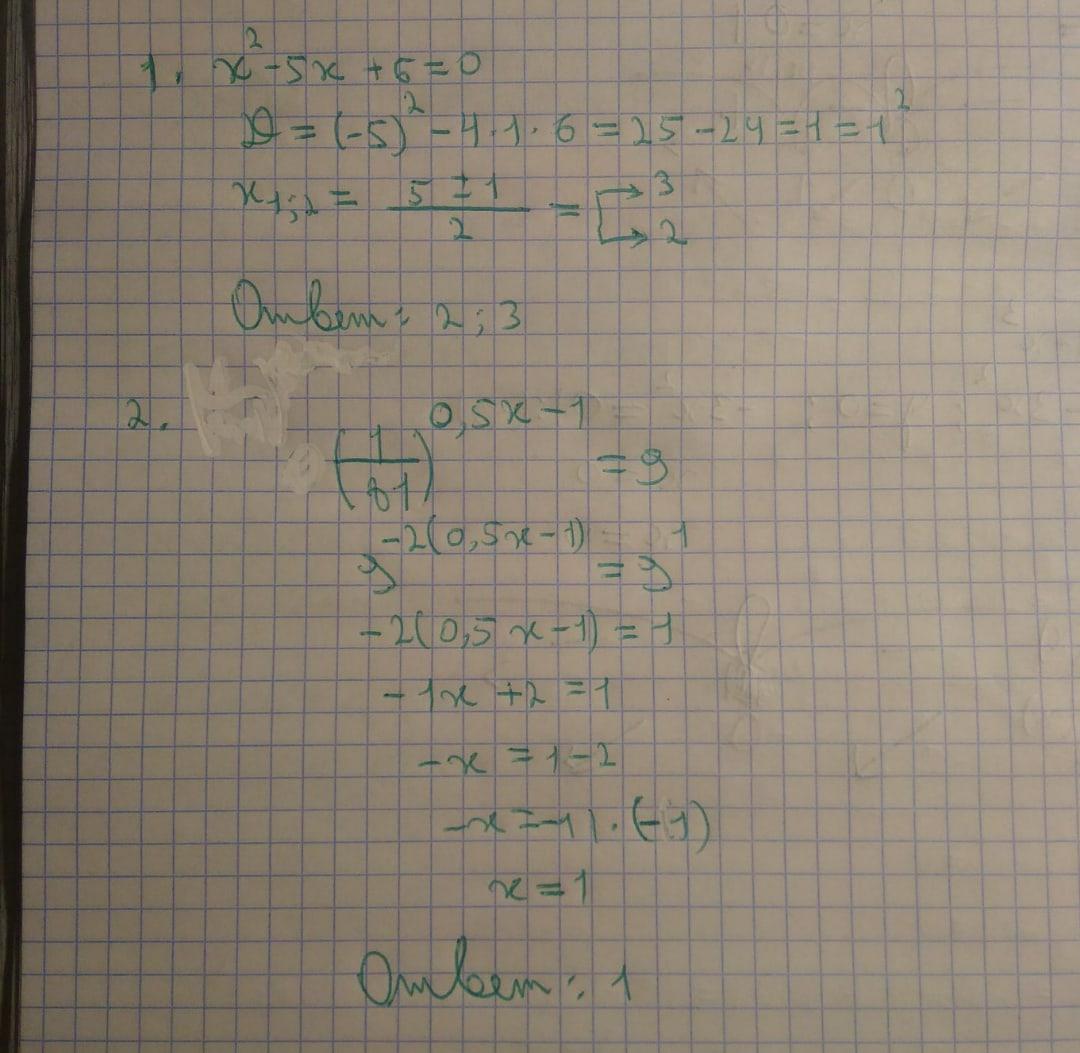 1. x² - 5x + 6 = 0
D = (-5)² - 4·1·6 = 25 - 24 = 1 = 1²
x₁;₂ = (5 ± 1)/2 = [→ 3 → 2
Ответ: 2; 3
2. (1/81)^(0,5x - 1) = 9
9^(-2(0,5x - 1)) = 9¹
-2(0,5x - 1) = 1
-1x + 2 = 1
-x = 1 - 2
-x = -1 | · (-1)
x = 1
Ответ: 1